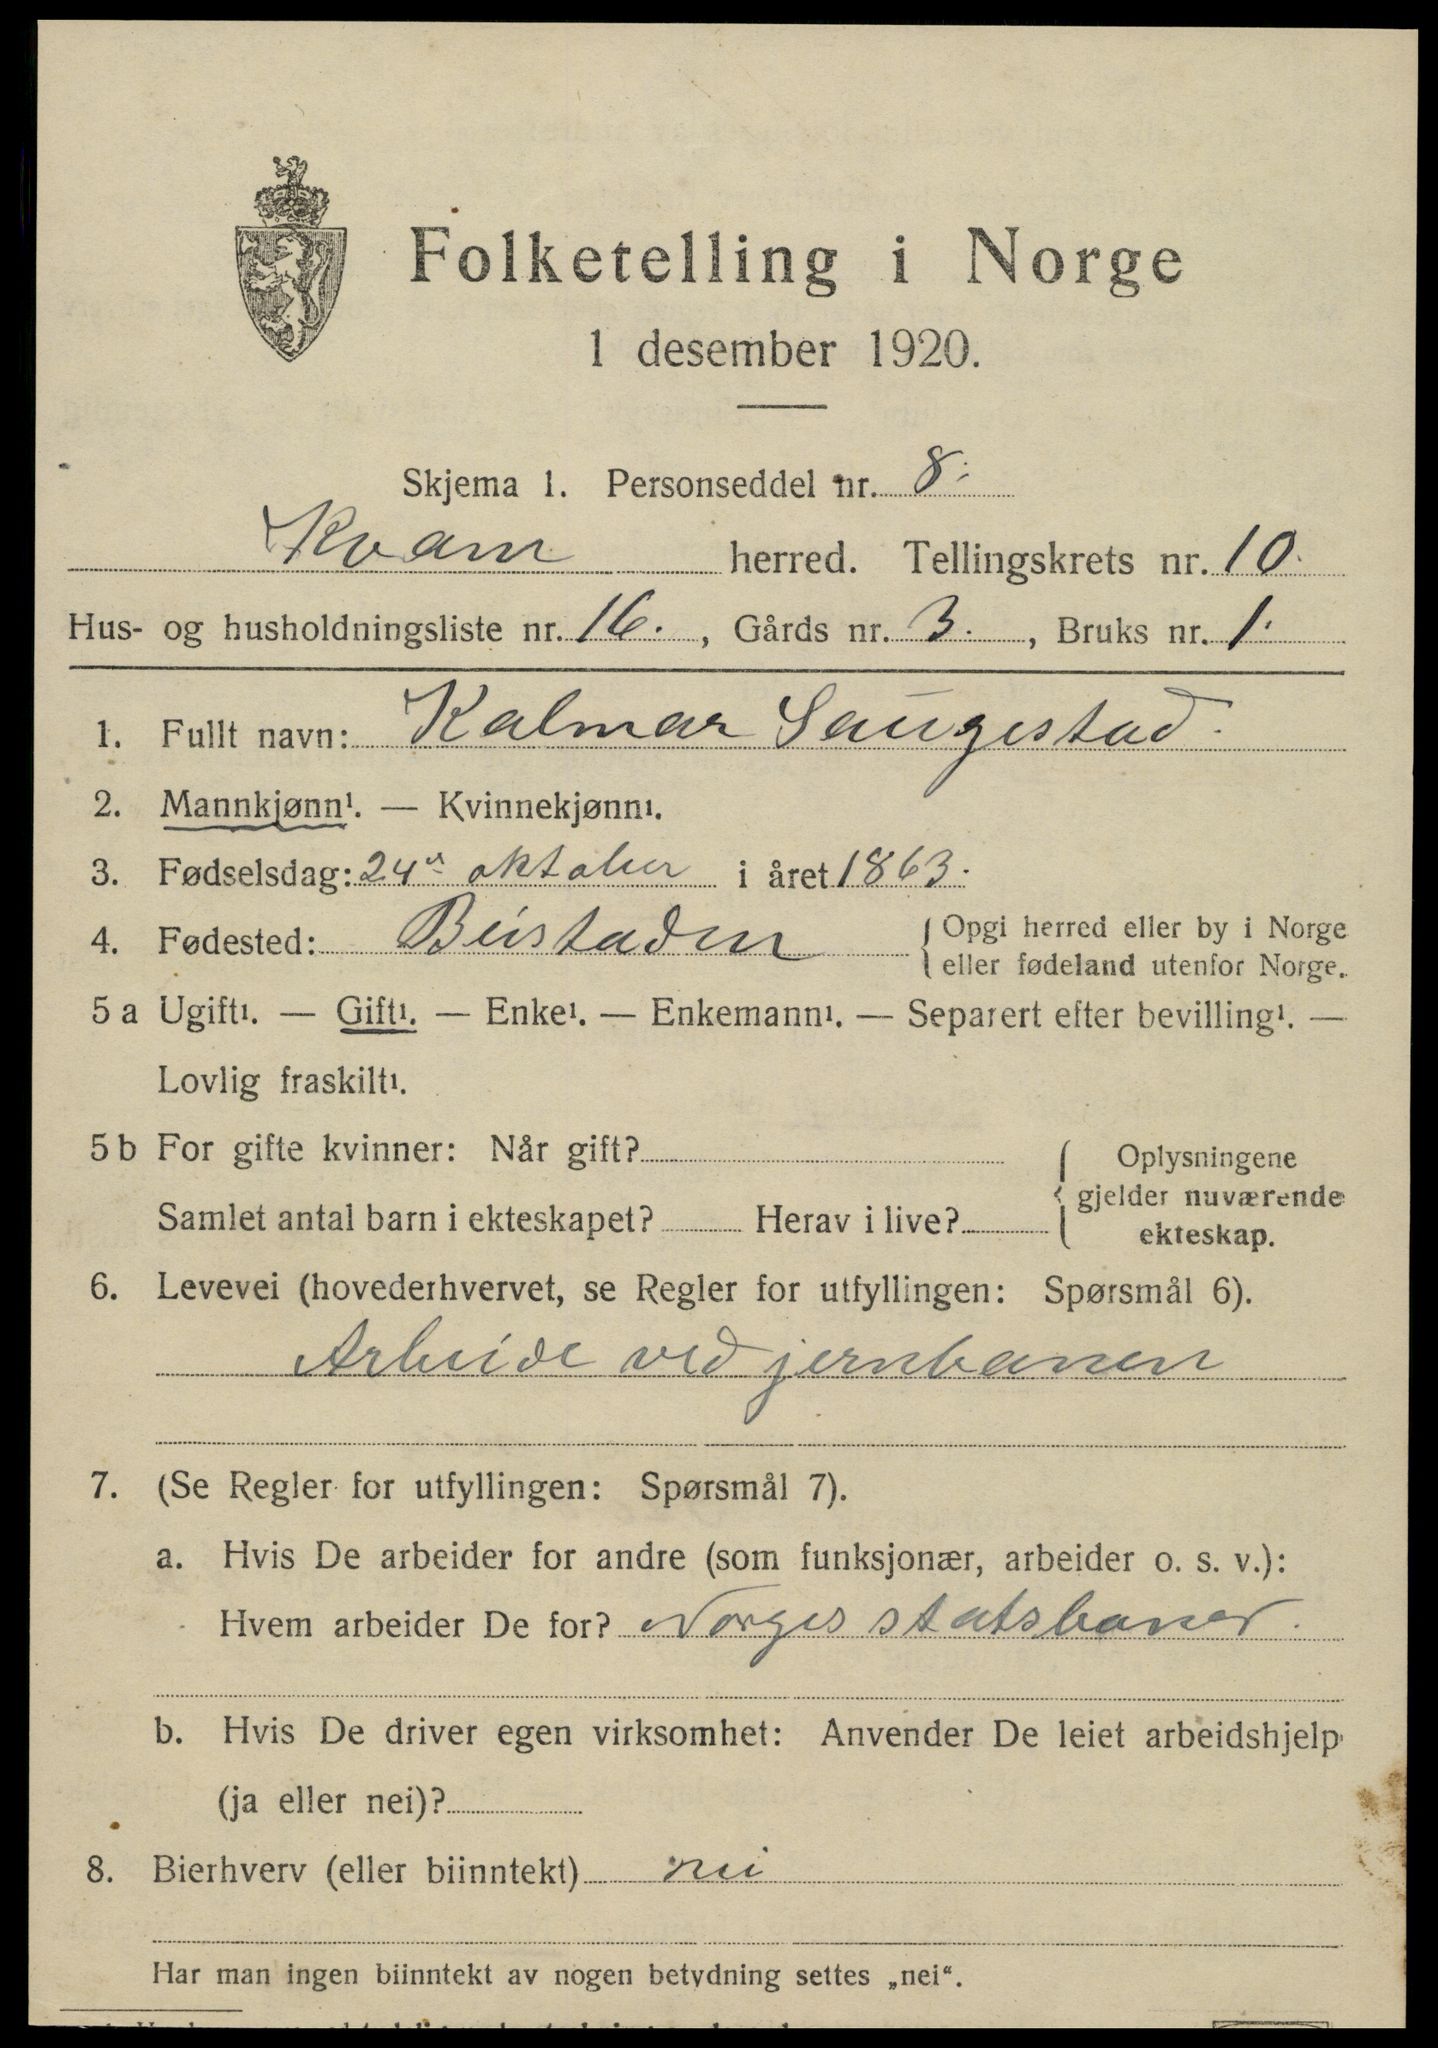 Folketelling i Norge
1 desember 1920.
Skjema 1. Personseddel nr. 8.
Kvam herred. Tellingskrets nr. 10.
Hus- og husholdningsliste nr. 16., Gårds nr. 3., Bruks nr. 1.
1. Fullt navn: Kalmar Saugestad.
2. Mannkjønn¹. — Kvinnekjønn¹.
3. Fødselsdag: 24de oktober i året 1863.
4. Fødested: Beistaden { Opgi herred eller by i Norge
eller fødeland utenfor Norge.
5 a Ugift¹. — Gift¹. — Enke¹. — Enkemann¹. — Separert efter bevilling¹. —
Lovlig fraskilt¹.
5 b For gifte kvinner: Når gift? { Oplysningene
gjelder nuværende
Samlet antal barn i ekteskapet? Herav i live?
ekteskap.
6. Levevei (hovederhvervet, se Regler for utfyllingen: Spørsmål 6).
Arbeide ved jernbanen
7. (Se Regler for utfyllingen: Spørsmål 7).
a. Hvis De arbeider for andre (som funksjonær, arbeider o. s. v.):
Hvem arbeider De for? Norges statsbaner.
b. Hvis De driver egen virksomhet: Anvender De leiet arbeidshjelp
(ja eller nei)?
8. Bierhverv (eller biinntekt) nei
Har man ingen biinntekt av nogen betydning settes „nei“.